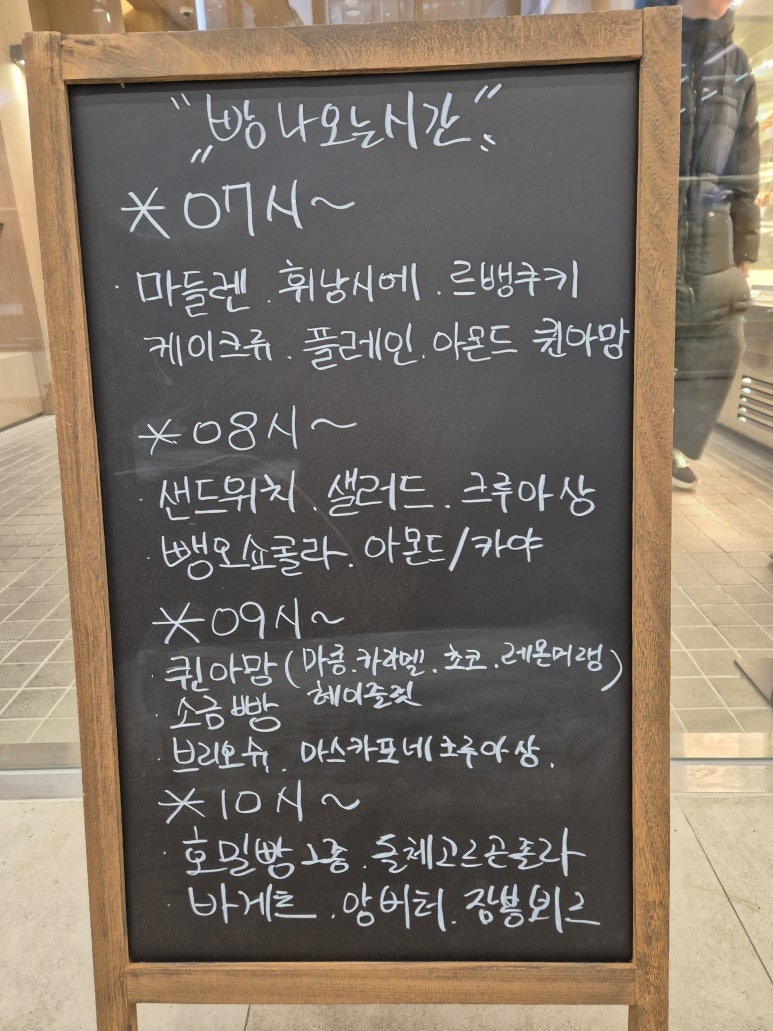 "빵 나오는시간"
* 07시~
· 마들렌 . 휘낭시에 . 르뱅쿠키
케이크류 . 플레인 . 아몬드 퀸아망
* 08시~
· 샌드위치 . 샐러드 . 크루아상
· 뺑오쇼콜라 . 아몬드/카야
* 09시~
· 퀸아망 (마롱.카라멜.초코.레몬머랭)
헤이즐럿
· 소금빵
· 브리오슈 . 마스카포네크루아상.
* 10시~
· 호밀빵2종 . 돌체고르곤졸라
· 바게트 . 앙버터 . 잠봉뵈르